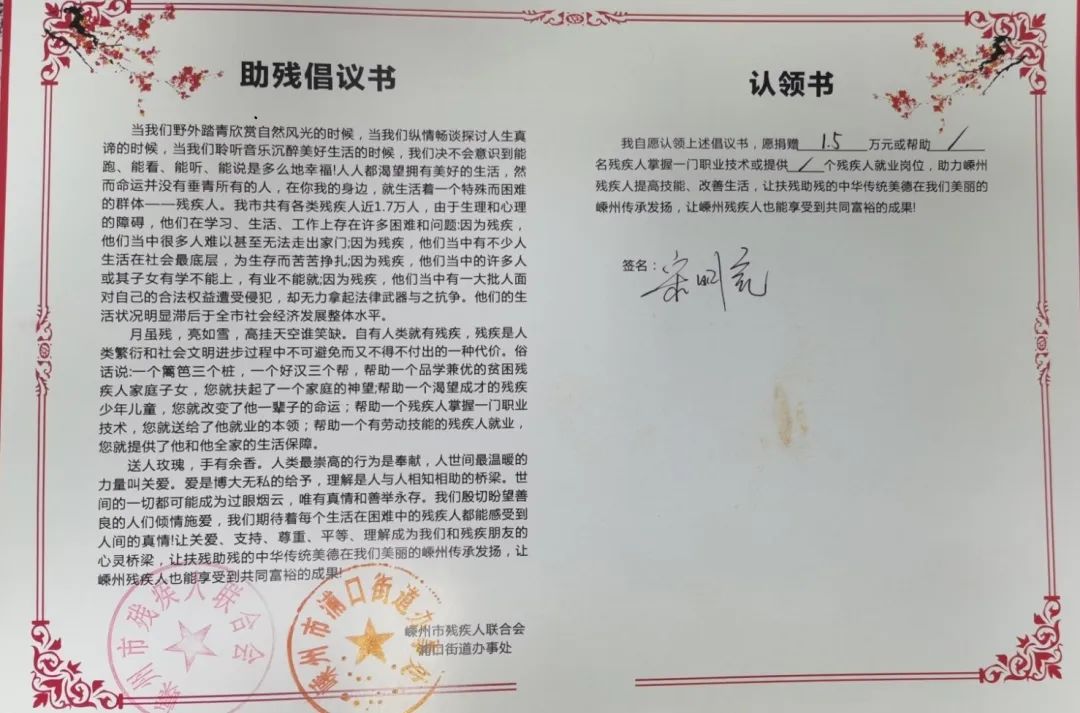 助残倡议书
当我们野外踏青欣赏自然风光的时候，当我们纵情畅谈探讨人生真
谛的时候，当我们聆听音乐沉醉美好生活的时候，我们决不会意识到能
跑、能看、能听、能说是多么地幸福!人人都渴望拥有美好的生活，然
而命运并没有垂青所有的人，在你我的身边，就生活着一个特殊而困难
的群体——残疾人。我市共有各类残疾人近1.7万人，由于生理和心理
的障碍，他们在学习、生活、工作上存在许多困难和问题:因为残疾，
他们当中很多人难以甚至无法走出家门;因为残疾，他们当中有不少人
生活在社会最底层，为生存而苦苦挣扎;因为残疾，他们当中的许多人
或其子女有学不能上，有业不能就;因为残疾，他们当中有一大批人面
对自己的合法权益遭受侵犯，却无力拿起法律武器与之抗争。他们的生
活状况明显滞后于全市社会经济发展整体水平。
月虽残，亮如雪，高挂天空谁笑缺。自有人类就有残疾，残疾是人
类繁衍和社会文明进步过程中不可避免而又不得不付出的一种代价。俗
话说:一个篱笆三个桩，一个好汉三个帮，帮助一个品学兼优的贫困残
疾人家庭子女，您就扶起了一个家庭的神望;帮助一个渴望成才的残疾
少年儿童，您就改变了他一辈子的命运；帮助一个残疾人掌握一门职业
技术，您就送给了他就业的本领；帮助一个有劳动技能的残疾人就业，
您就提供了他和他全家的生活保障。
送人玫瑰，手有余香。人类最崇高的行为是奉献，人世间最温暖的
力量叫关爱。爱是博大无私的给予，理解是人与人相知相助的桥梁。世
间的一切都可能成为过眼烟云，唯有真情和善举永存。我们殷切盼望善
良的人们倾情施爱，我们期待着每个生活在困难中的残疾人都能感受到
人间的真情!让关爱、支持、尊重、平等、理解成为我们和残疾朋友的
心灵桥梁，让扶残助残的中华传统美德在我们美丽的嵊州传承发扬，让
嵊州残疾人也能享受到共同富裕的成果!
嵊州市残疾人联合会
浦口街道办事处
嵊州市残疾人联合会
嵊州市浦口街道办事处
认领书
我自愿认领上述倡议书，愿捐赠 1.5 万元或帮助 /
名残疾人掌握一门职业技术或提供 / 个残疾人就业岗位，助力嵊州
残疾人提高技能、改善生活，让扶残助残的中华传统美德在我们美丽的
嵊州传承发扬，让嵊州残疾人也能享受到共同富裕的成果!
签名：宋明